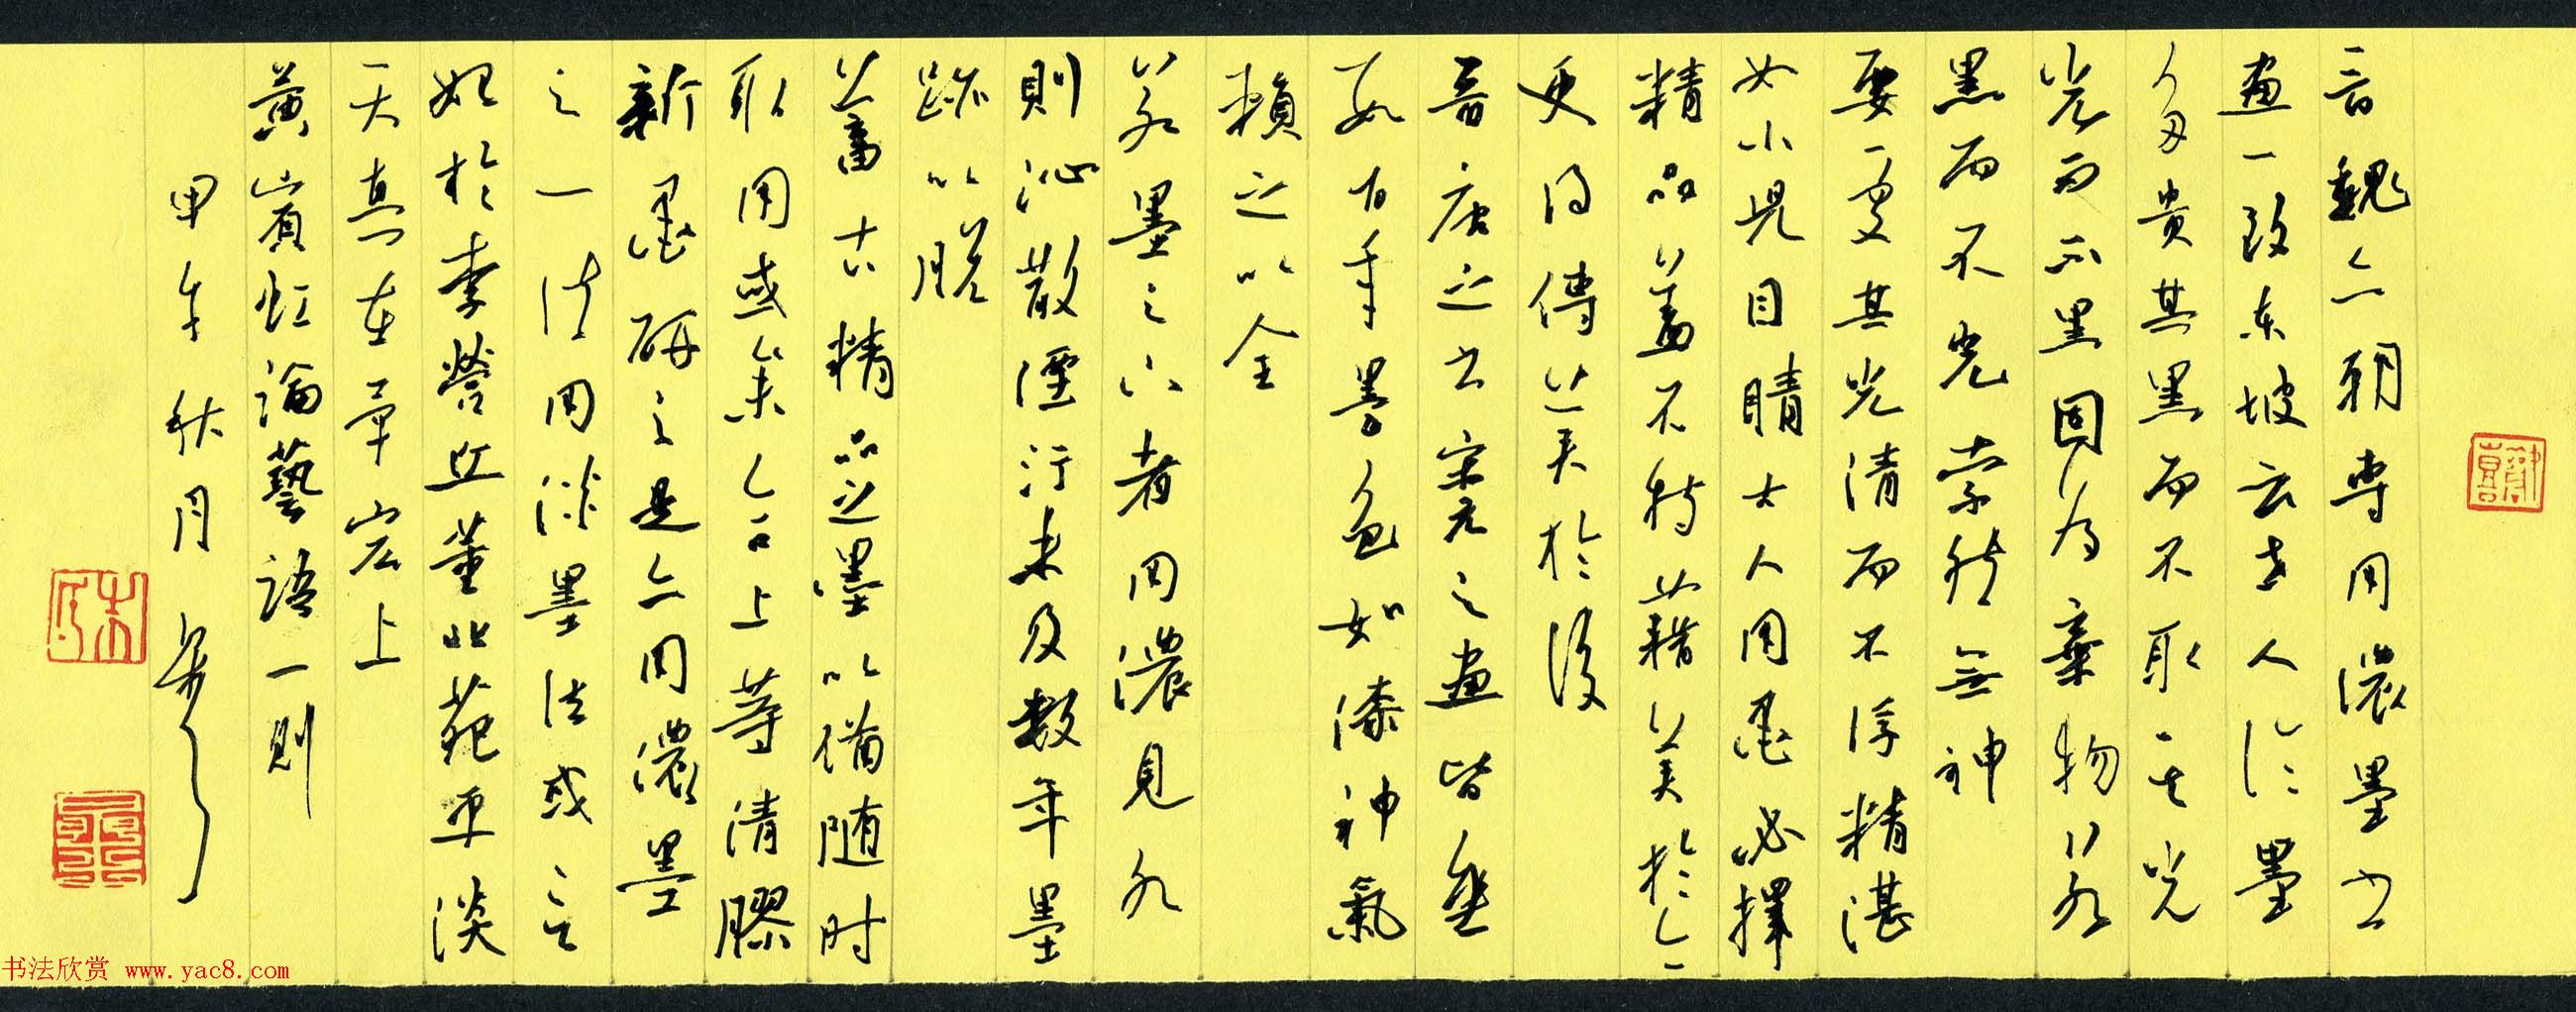 晉魏六朝專用濃墨書
畫一致東坡云世人論墨
多貴其黑而不取其光
光而不黑固為棄物若
黑而不光索然無神
要使其光清而不浮精湛
如小兒目睛古人用墨必擇
精品蓋不特藉美於今
更得傳美於後
晉唐之書宋元之畫皆垂
數百年墨色如漆神氣
賴之以全
若墨之下者用濃見水
則沁散湮污未及數年墨
跡以脫
蓄古精品之墨以備隨時
取用或參合上等清膠
新墨研之是亦用濃墨
之一法用淡墨法或言
始於李營丘董北苑平淡
天真在畢宏上
黃賓虹論藝語一則
甲午秋月
书法欣赏 www.yac8.com